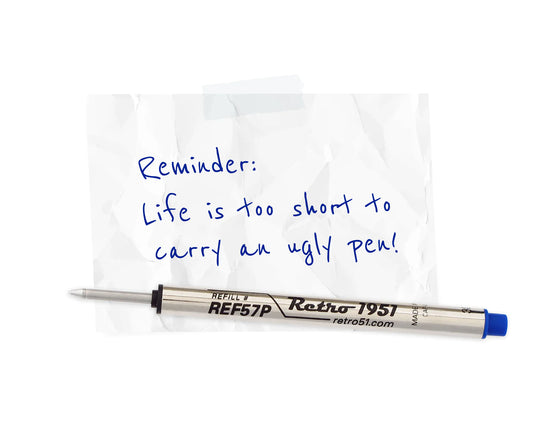 Reminder:
Life is too short to
carry an ugly pen!
REFILL #
REF57P
Retro 1951
retro51.com
MADE